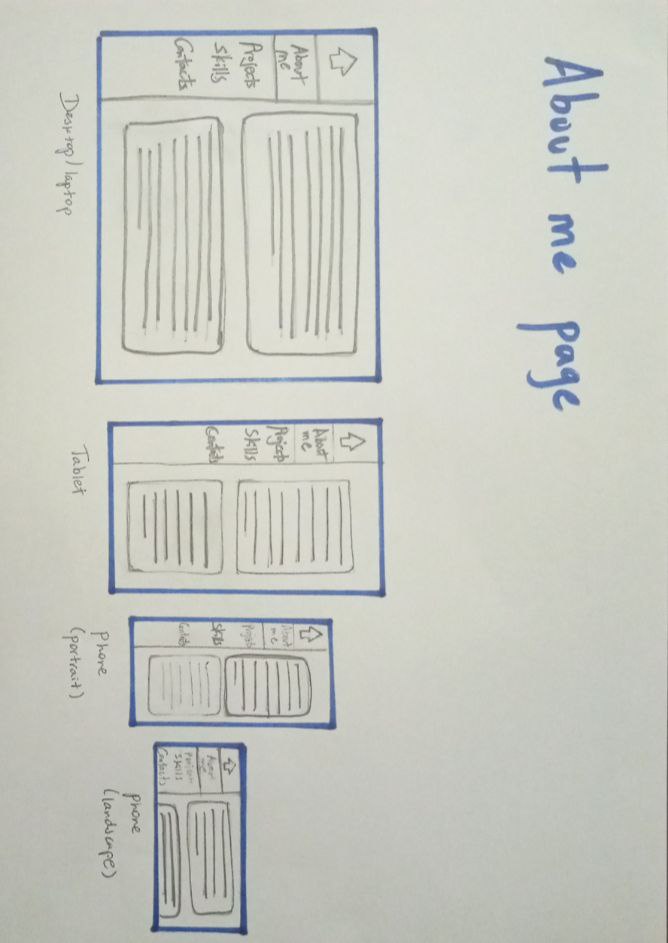 About me page
About
me
Projects
Skills
Contacts
Desktop/laptop
About
me
Projects
Skills
Contacts
Tablet
About
me
Projects
Skills
Contacts
phone
(portrait)
About
me
Projects
Skills
Contacts
phone
(landscape)